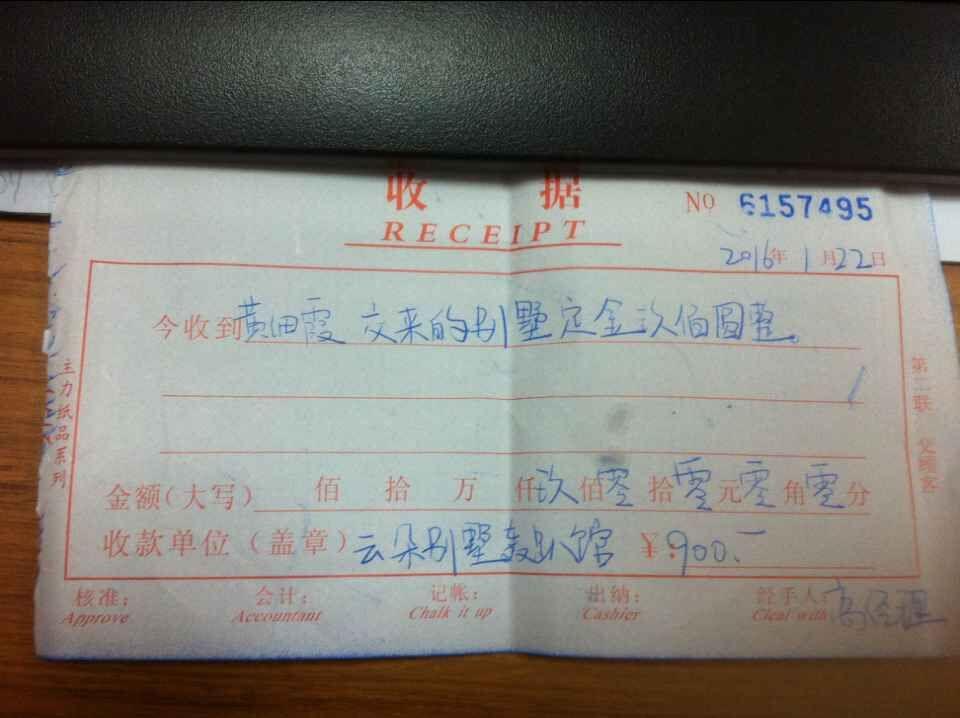 收据
RECEIPT
No 6157495
2016年1月22日
今收到黄田霞 交来的别墅定金玖佰圆整。
金额(大写) 佰 拾 万 仟玖佰零拾零元零角零分
收款单位(盖章)云朵别墅轰趴馆 ¥:900.一
核准: 会计: 记帐: 出纳: 经手人:高经理
Approve Accountant Chalk it up Cashier Cleal with
主力纸品系列
第二联 交顾客